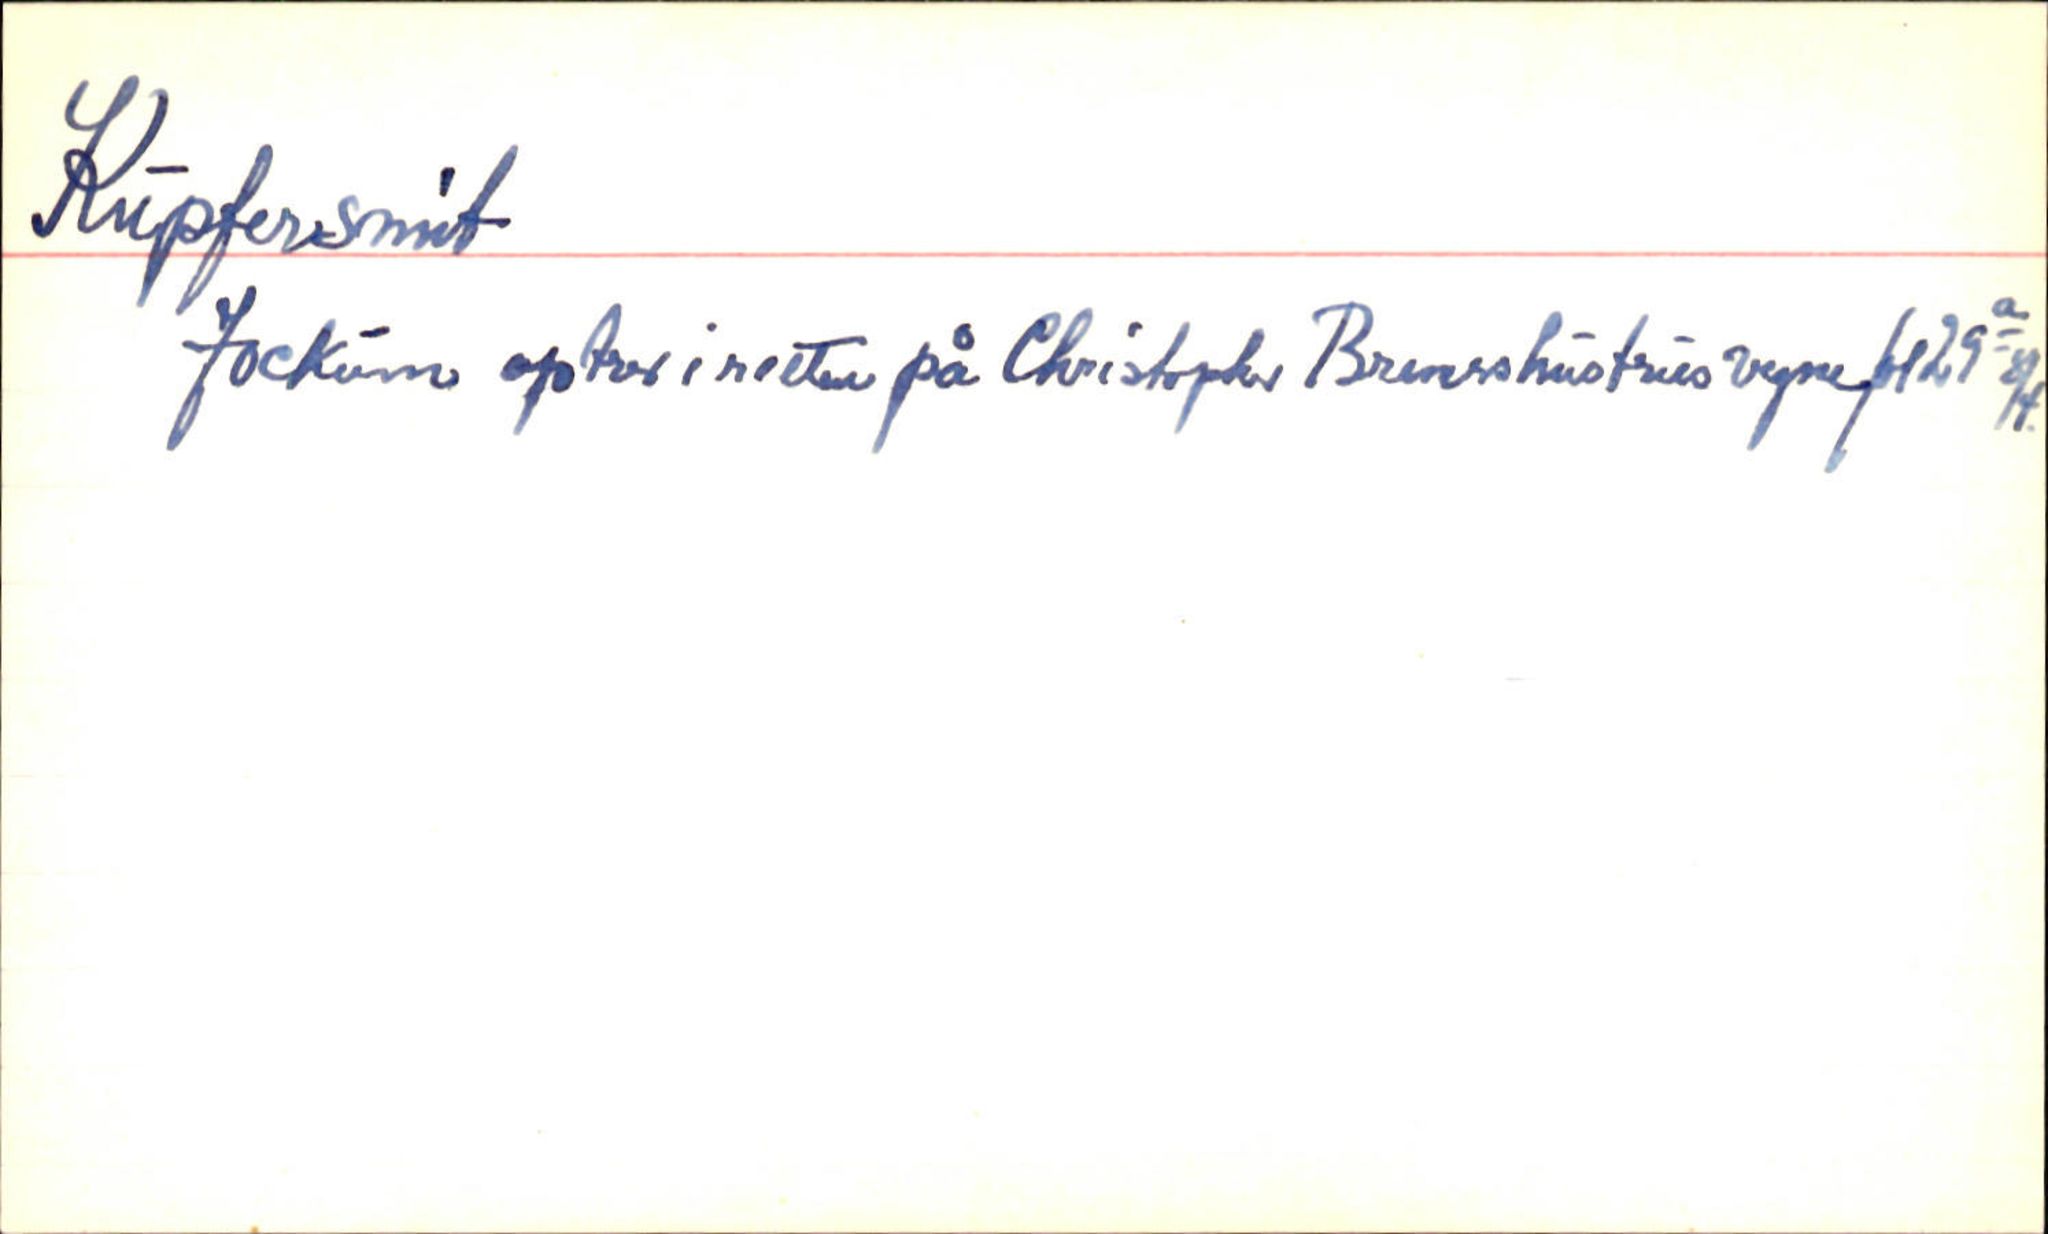 Kupfersmit
Jockum optrer i retten på Christopher Bremers hustrus vegne bl 29 a